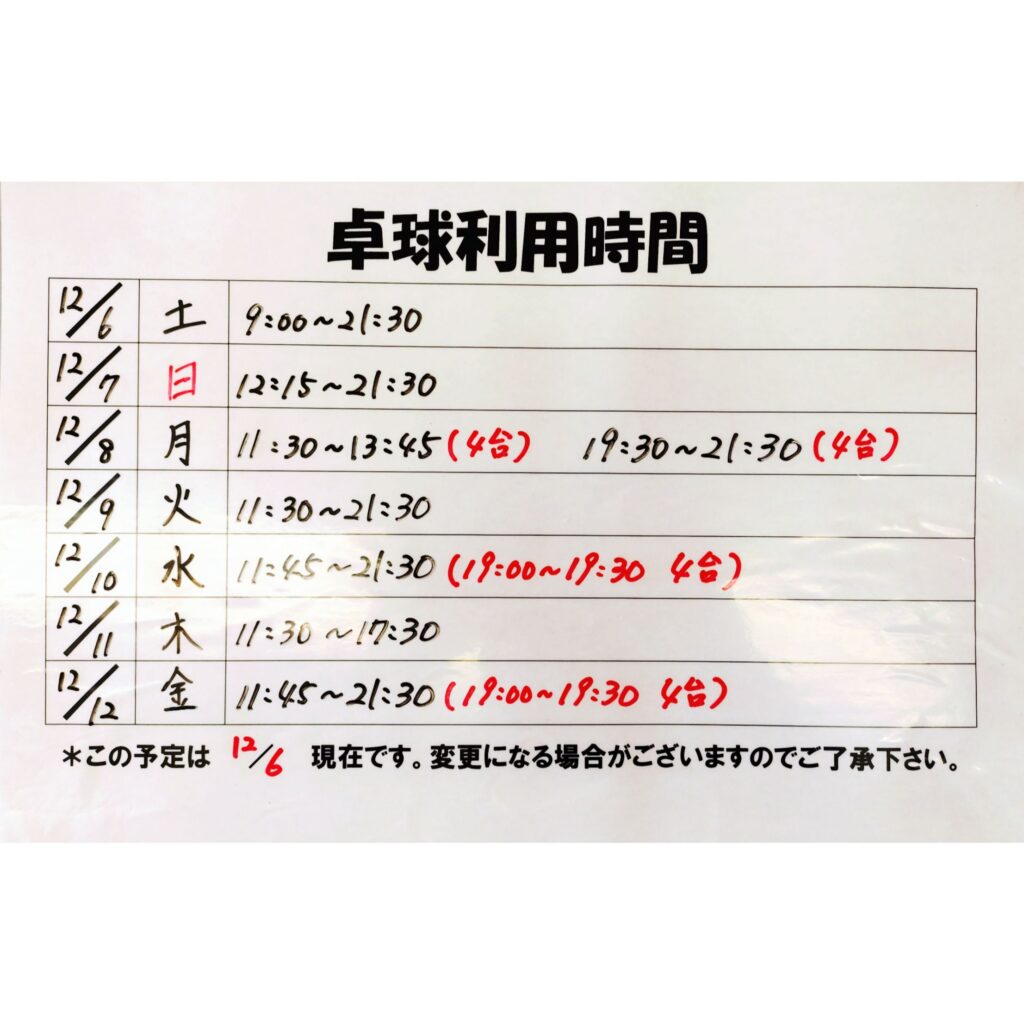 卓球利用時間
12/6 土 9:00~21:30
12/7 日 12:15~21:30
12/8 月 11:30~13:45(4台) 19:30~21:30(4台)
12/9 火 11:30~21:30
12/10 水 11:45~21:30(19:00~19:30 4台)
12/11 木 11:30~17:30
12/12 金 11:45~21:30(19:00~19:30 4台)
*この予定は 12/6 現在です。変更になる場合がございますのでご了承下さい。